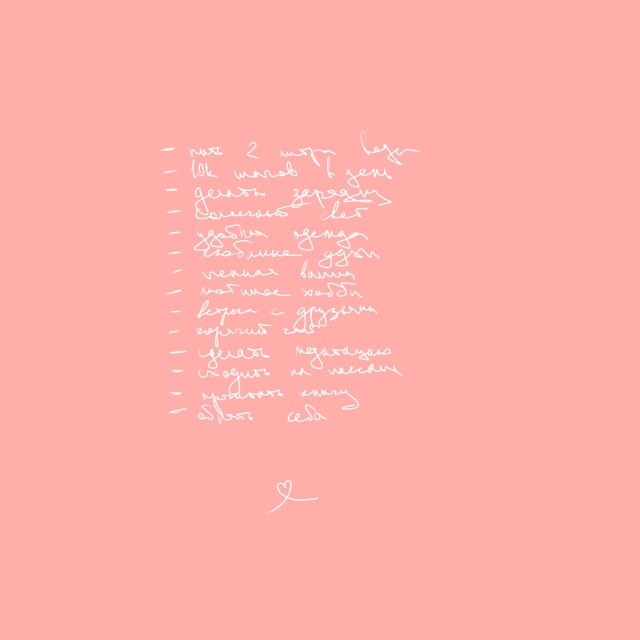 - пить 2 литра воды
- 10к шагов в день
- делать зарядку
- солнечный свет
- удобная одежда
- любимые духи
- пенная ванна
- любимое хобби
- встреча с друзьями
- горячий чай
- сделать медитацию
- сходить на массаж
- прочитать книгу
- обнять себя